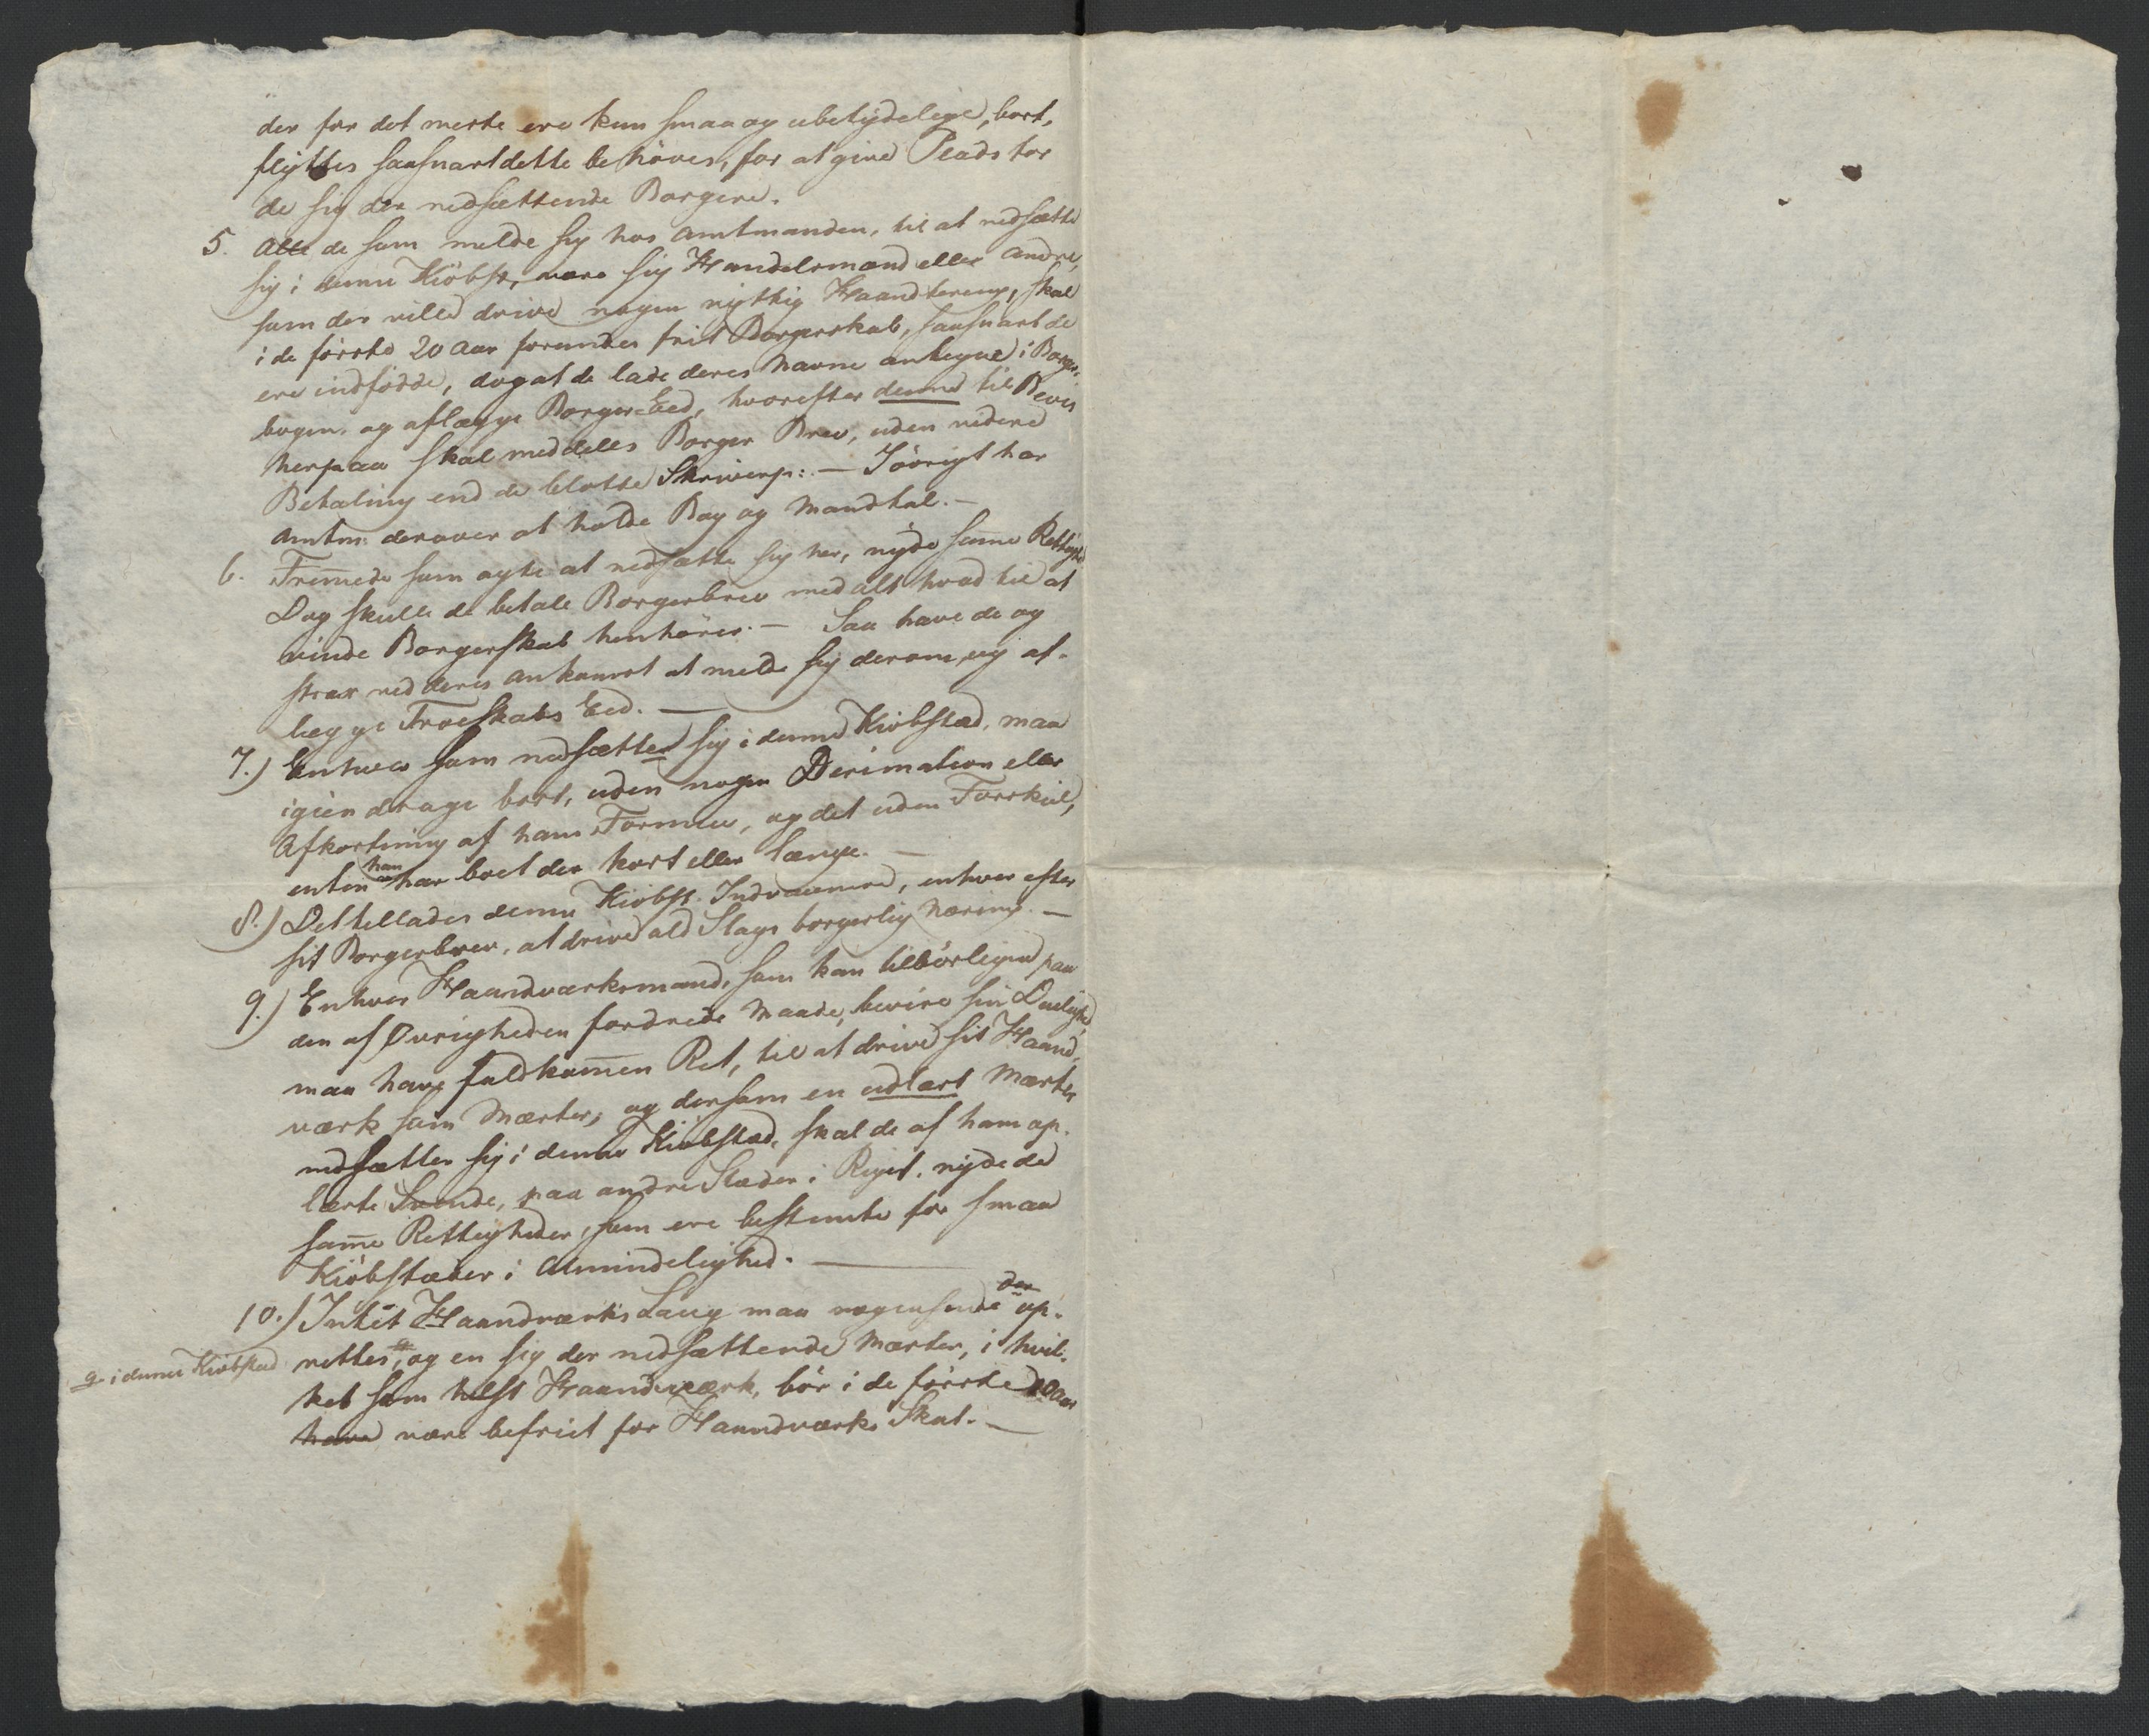 der for det meste ere kun smaa og ubetydelige, bort,
flyttes saasnart dette behöves, for at give Plads for
de sig der nedsættende Borgere.
5. Alle de som melde sig hos Amtmanden, til at nedsætte
sig i denne Kiöbst, være sig Handelsmænd eller andre,
som der ville drive nogen nyttig Haandtering, skal
i de förste 20 Aar forundes frit Borgerskab, saasnart de
ere indfödde, dog at de lade deres Navne antegne i Borger-
bogen, og aflægge Borger-Eed, hvorefter denne til Beviis
herpaa skal meddeles Borger Brev, uden videre
Betaling end de blotte Skriverp: — Iövrigt har
Amtm: derover at holde Bog og Mandtal. —
6. Fremede som agte at nedsætte sig her, nyde same Rettighd
Dog skulle de betale Borgerbrev med alt hvad til at
vinde Borgerskab henhörer. — Saa have de og
strax ved deres Ankomst at melde sig derom, og af-
lægge Troeskabs Eed. —
7.) Enhver som nedsætter sig i denne Kiöbstæd, maa
igien drage bort, uden nogen Decimation eller
Afkortning af hans Formue, og det uden Forskiel,
enten han har boet der kort eller længe. —
8.) Det tillades denne Kiöbst. Indvaanere, enhver efter
sit Borgerbrev, at drive ald Slags borgerlig Næring. —
9.) Enhver Haandværksmand, som kan tilbörligen paa
den af Øvrigheden fordrede Maade, bevise sin Duelighd
maa have fuldkomen Ret, til at drive sit Haand,
værk som Mæster, og dersom en udlært Mæster
nedsætter sig i denne Kiöbstæd, skal de af ham op-
lærte Svende, paa andre Stæder i Riget, nyde de
same Rettigheder, som ere bestemte for smaa
Kiöbstæder i Almindelighed. —
10.) Intet Haandværks Laug maa nogensinde der op-
rettes, og en sig der nedsættende Mæster, i hvil-
a i denne Kiöbstad
ket som helst Haandværk, bör i de förste 20 Aar
have være befriet for Haandværks Skat. —